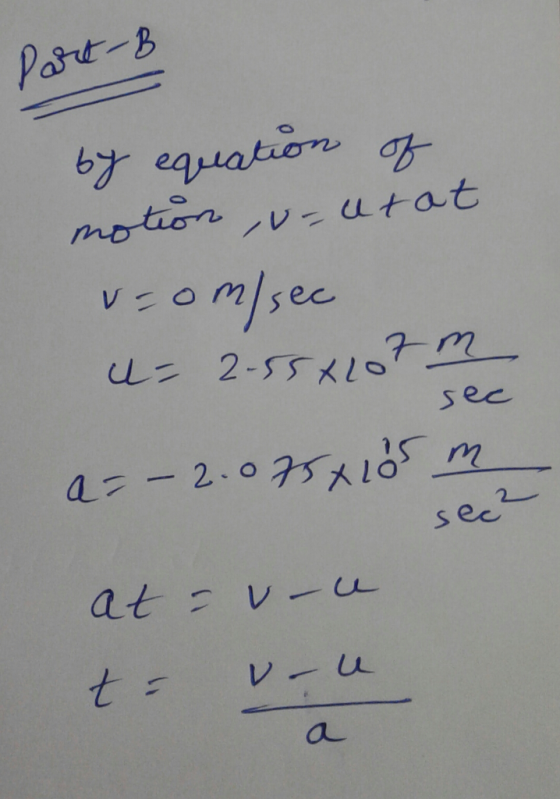 Part-B
by equation of
motion, v = u + at
v = 0 m/sec
u = 2.55 × 10⁷ m/sec
a = - 2.075 × 10¹⁵ m/sec²
at = v - u
t = v - u / a